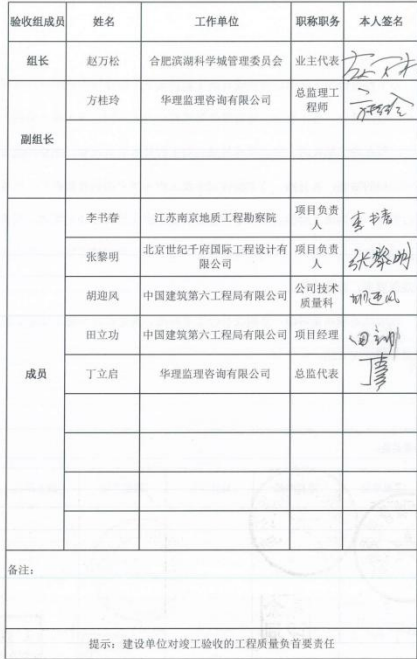 验收组成员 姓名 工作单位 职称职务 本人签名
组长 赵万松 合肥滨湖科学城管理委员会 业主代表
副组长 方桂玲 华理监理咨询有限公司 总监理工程师
成员 李书春 江苏南京地质工程勘察院 项目负责人 李书春
张黎明 北京世纪千府国际工程设计有限公司 项目负责人 张黎明
胡迎风 中国建筑第六工程局有限公司 公司技术质量科 胡迎风
田立功 中国建筑第六工程局有限公司 项目经理 田立功
丁立启 华理监理咨询有限公司 总监代表
备注：
提示：建设单位对竣工验收的工程质量负首要责任